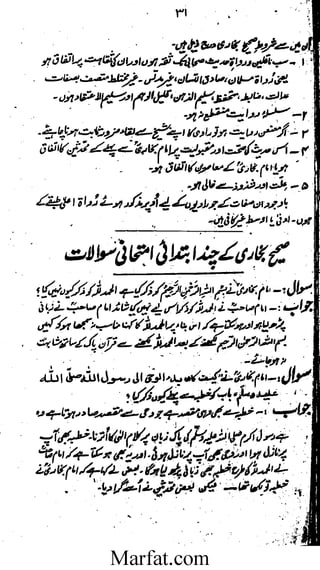 ۳۱
ان میں سے شروط صحیح بخاری درج ذیل ہیں۔
۱ - سب ناقلین ورواۃ حدیث صحابی تک ثقہ ہوں اور ان کی ثقاہت پر اتفاق ہو
یعنی رواۃ مسلمان، صادق اللسان، غیر مدلس، غیر مختلط متصف بصفات
عدالت، ضابط، متحفظ، سلیم الذہن، قلیل الوہم اور سلیم الاعتقاد ہوں۔
۲ - سلسلہ روایت منقطع نہ ہو۔
۳ - اگر معنعن روایت ہو تو راوی کا اپنے شیخ سے لقاء ضرور ثابت ہونا چاہئے۔
۴ - اس حدیث کی صحت اور مقبولیت پر امام بخاری سے پہلے کے محدثین کا اتفاق
ہو یا امام بخاری کے معاصروں کا اتفاق ہو۔
۵ - علت اور شذوذ سے خالی ہو۔
باوجود ان صفات کے جو راویوں کے لیے اوپر مذکور ہوئے رواۃ اعلیٰ طبقے کے
ہوں۔ ادنیٰ یا اوسط غیر کافی ہیں۔
صحیح بخاری کے چند ابتدائی امتحانی سوالات
سوال :- امام بخاری نے بسم اللہ الرحمٰن الرحیم کو ذکر کیا ہے الحمد للہ کو ذکر کیوں نہیں کیا؟
جواب :- امام صاحب نے الحمد للہ کو ذکر اس لیے نہیں کیا شائد امام صاحب نے زبانی
پڑھ لیا ہو اور ہو سکتا ہے کہ اس بناء پر الحمد للہ کا کہنا مناسب نہ سمجھا ہو کہ کہیں
بسم اللہ الرحمٰن الرحیم لکھنے کے بعد الحمد للہ لکھنے سے قرآن پاک کے ساتھ مشابہت
نہ ہو جائے۔
سوال :- امام بخاری نے کیف کان بدء الوحی الی رسول اللہ صلی اللہ
علیہ وسلم، باب کو خطبے سے پہلے کیوں ذکر کیا؟
جواب :- خطبے سے بھی وہی مقصد ہے جو وحی سے مقصد صادر ہوتا ہے وہ
ہے رسول اکرم صلی اللہ علیہ وسلم کی پاک زبان پر کلام الٰہی کا اترنا۔ خطبہ بھی آپ
پر نازل ہوا اور وحی بھی آپ پر نازل ہوئی۔ اور یہ بھی ہو سکتا ہے کہ امام صاحب
نے الحمد للہ کی طرح خطبہ بھی زبانی پڑھ لیا ہوگا۔ بعض نے کہا ہے کہ امام بخاری نے
خطبہ تو لکھا تھا۔ لیکن بعض محدثین نے اسے گرا دیا۔
Marfat.com